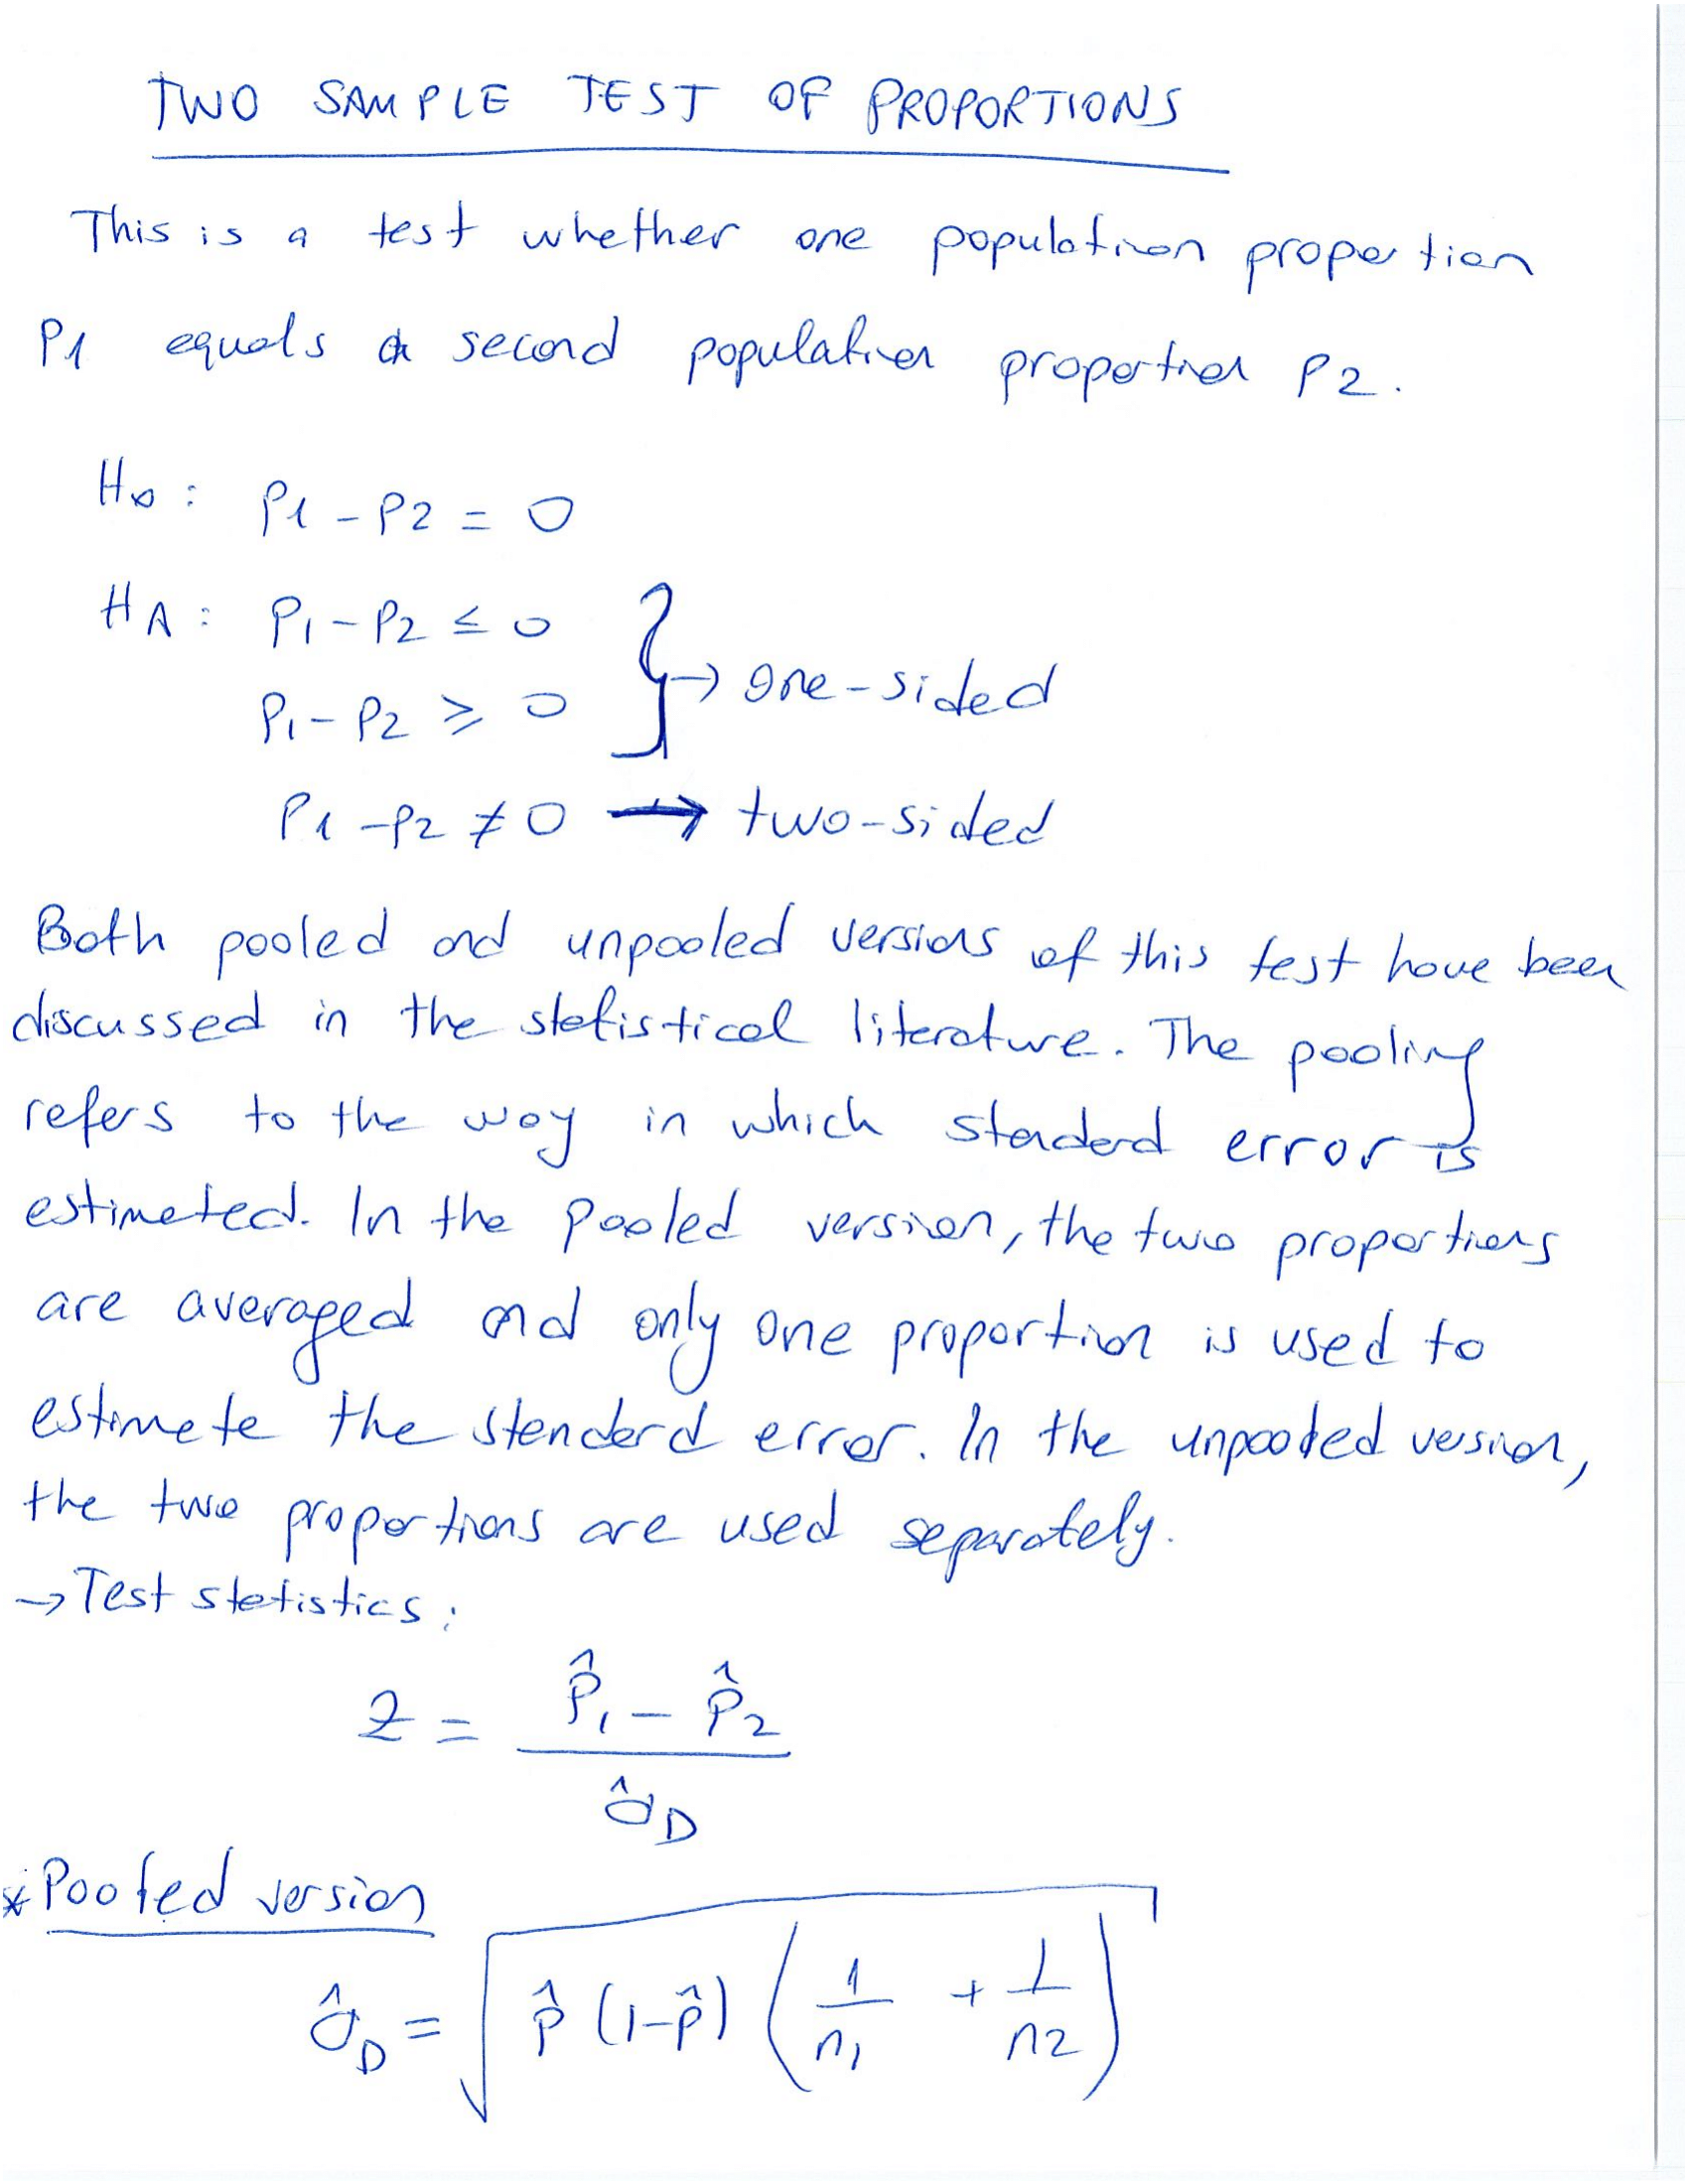 TWO SAMPLE TEST OF PROPORTIONS
This is a test whether one population proportion
P1 equals a second population proportion P2.
H0: P1 - P2 = 0
HA: P1 - P2 ≤ 0
P1 - P2 ≥ 0 } → one-sided
P1 - P2 ≠ 0 → two-sided
Both pooled and unpooled versions of this test have been
discussed in the statistical literature. The pooling
refers to the way in which standard error is
estimated. In the pooled version, the two proportions
are averaged and only one proportion is used to
estimate the standard error. In the unpooled version,
the two proportions are used separately.
→ Test statistics:
Z = (p̂1 - p̂2) / σ̂D
* Pooled version
σ̂D = √(p̂ (1-p̂) (1/n1 + 1/n2))